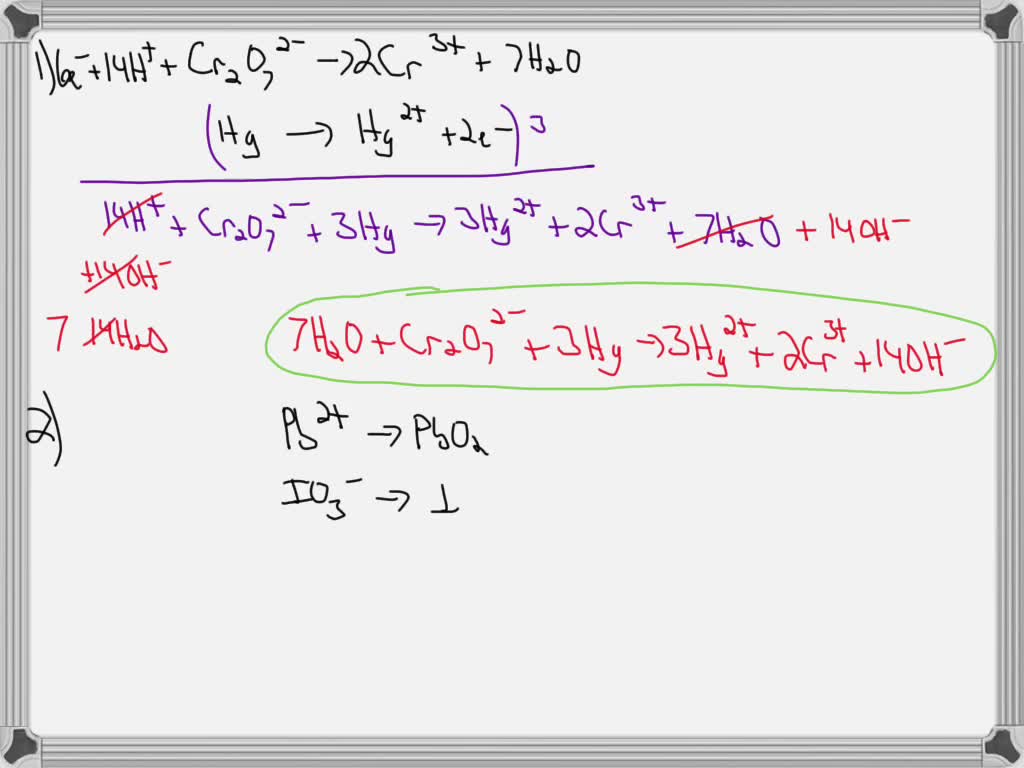 1) 6e⁻ + 14H⁺ + Cr₂O₇²⁻ → 2Cr³⁺ + 7H₂O
(Hg → Hg²⁺ + 2e⁻)3
14H⁺ + Cr₂O₇²⁻ + 3Hg → 3Hg²⁺ + 2Cr³⁺ + 7H₂O + 14OH⁻
+14OH⁻
7 14H₂O
7H₂O + Cr₂O₇²⁻ + 3Hg → 3Hg²⁺ + 2Cr³⁺ + 14OH⁻
2)
Pb²⁺ → PbO₂
IO₃⁻ → I